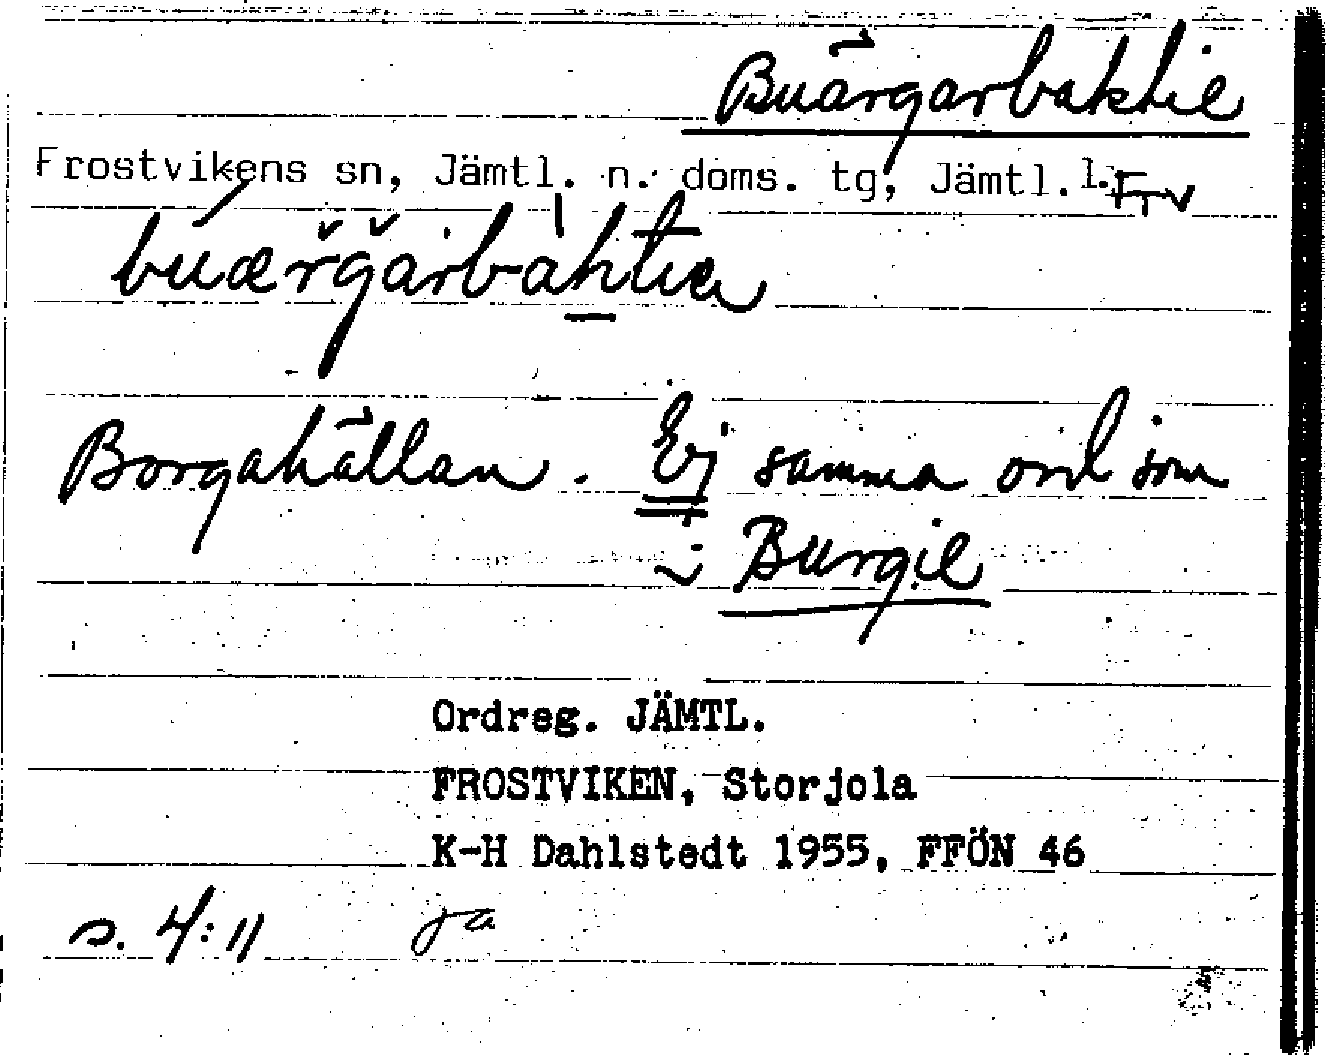 Buärgarbaktie
Frostvikens sn, Jämtl. n. doms. tg, Jämtl.l. Frv
Borgahällan. Ej samma ord som
i Burgie
Ordreg. JÄMTL.
FROSTVIKEN, Storjola
K-H Dahlstedt 1955, FFÖN 46
s. 4:11 ja